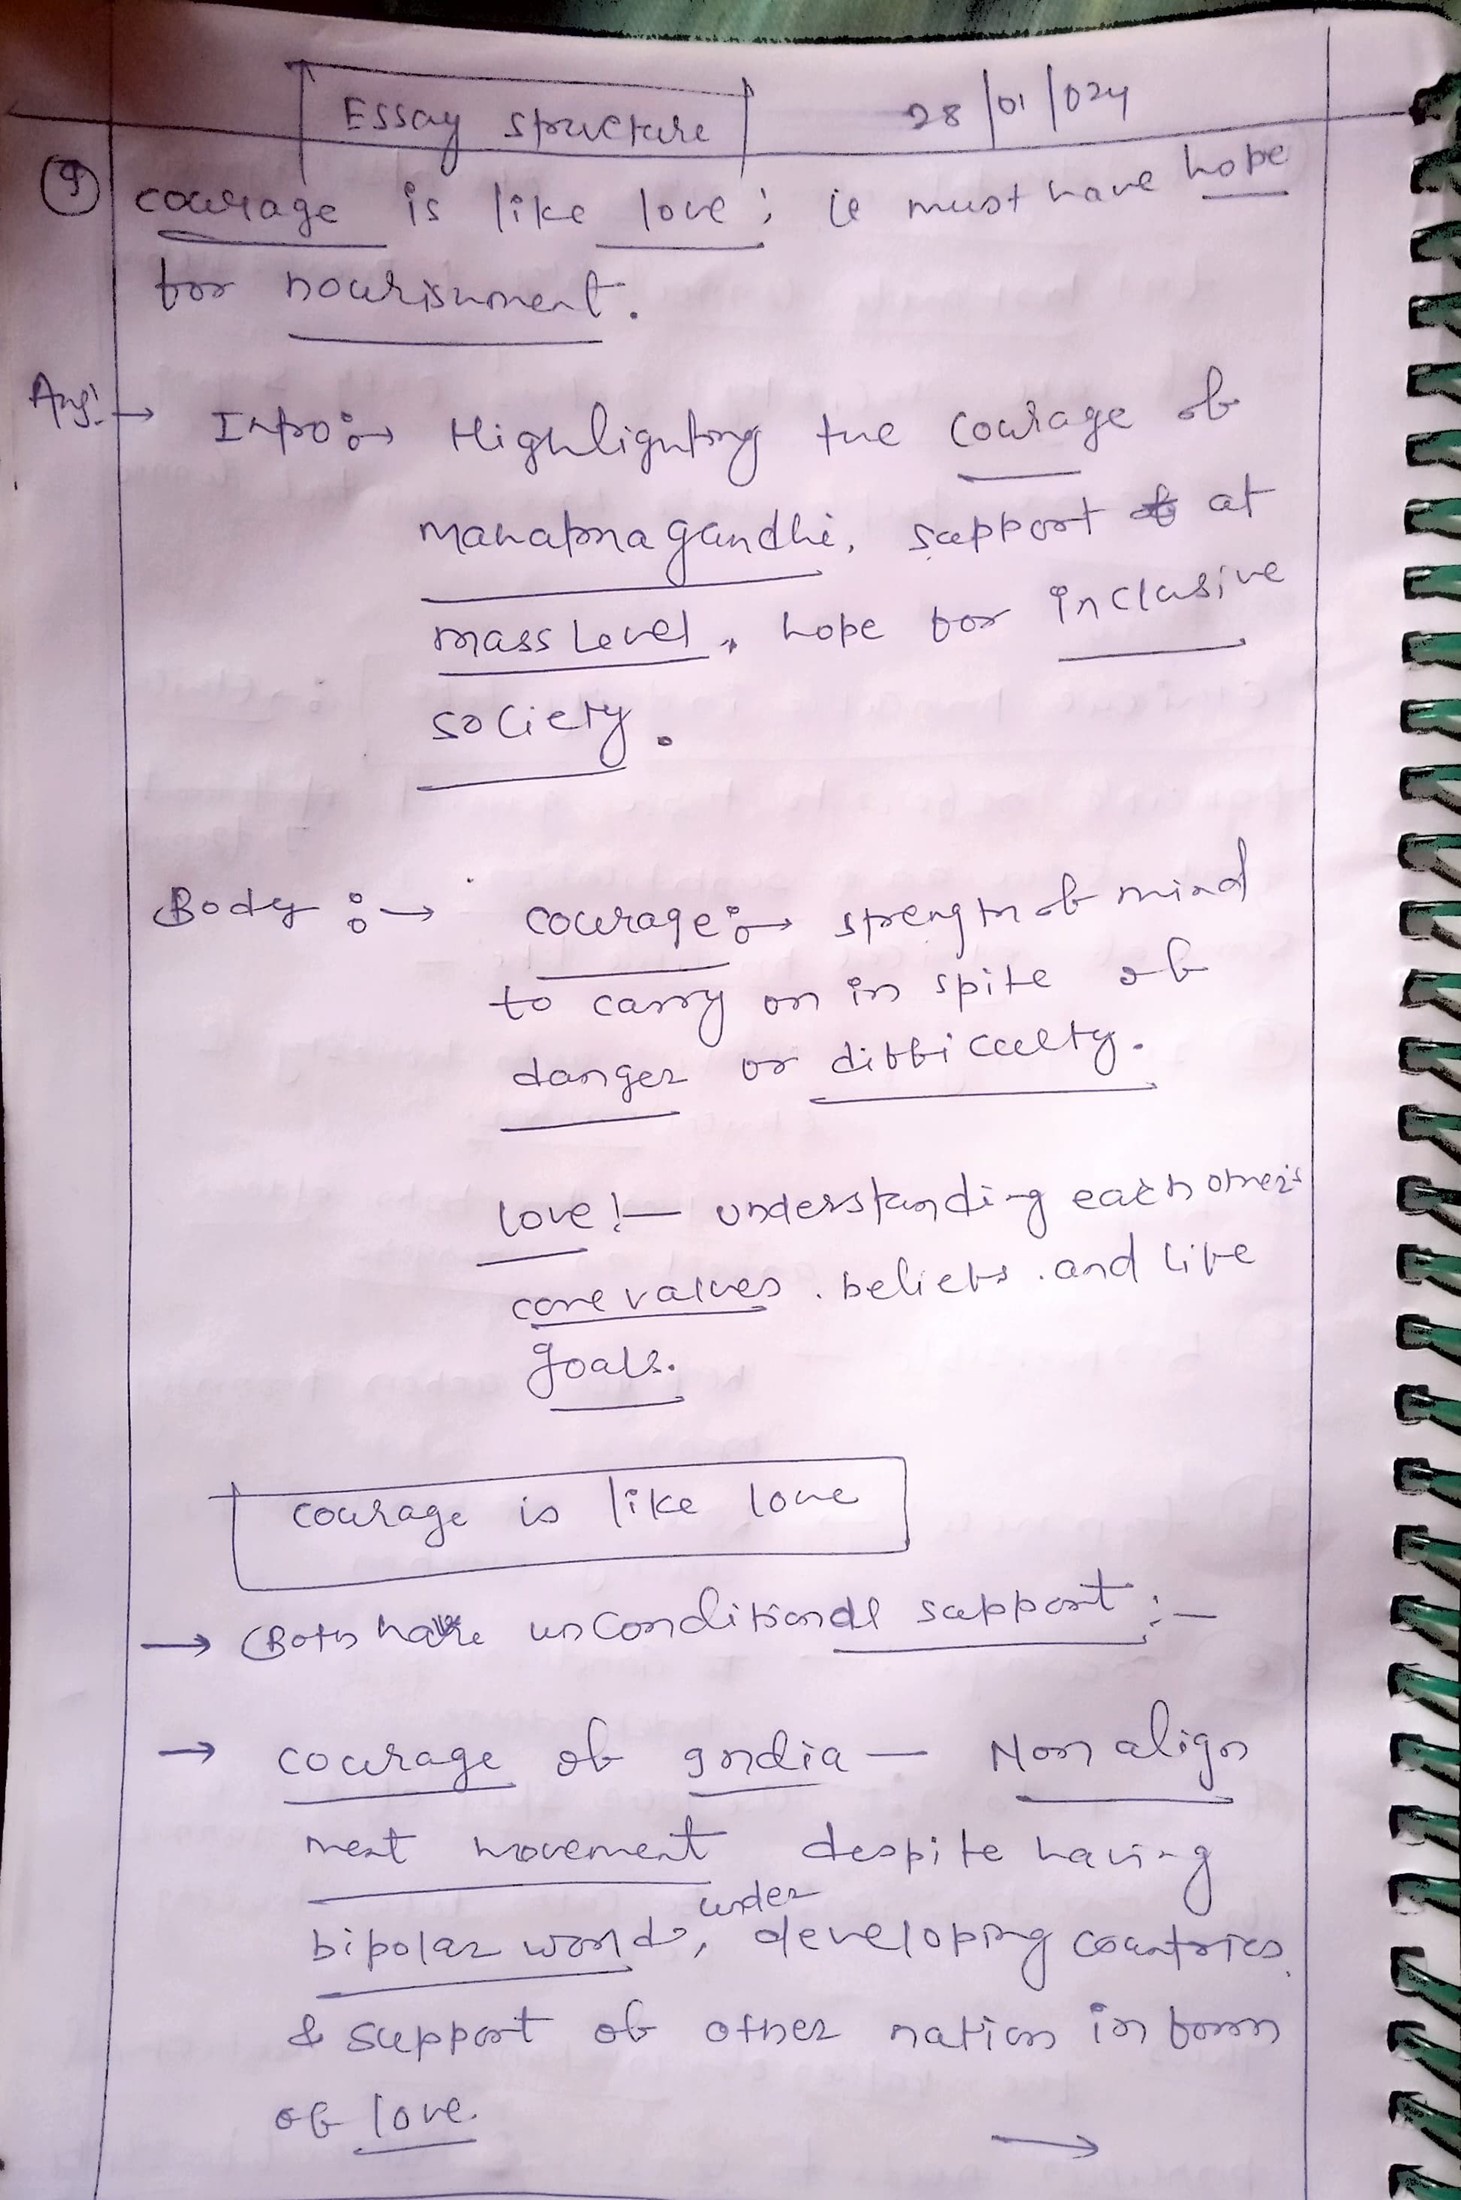 Essay structure 28/01/024
(9) courage is like love; it must have hope
for nourishment.
Ans:→ Intro:→ Highlighting the courage of
mahatma gandhi, support at
mass level, hope for inclusive
society.
Body :→ courage:→ strength of mind
to carry on in spite of
danger or difficulty.
love:— understanding each other's
core values, beliefs and life
goals.
courage is like love
→ Both have unconditional support:—
→ courage of India — Non align
ment movement despite having
bipolar world, under developing countries
& support of other nation in form
of love.
→